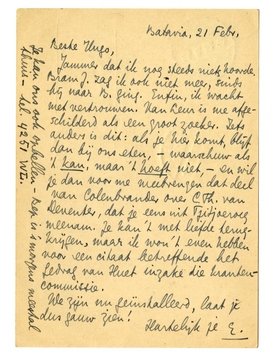 Batavia, 21 Febr.
Beste Hugo,
Jammer dat ik nog steeds niets hoorde.
Bram J. zag ik ook niet meer, sinds
hij naar B. ging. Enfin, ik wacht
met vertrouwen. Van Leur is me afge-
schilderd als een groot zoeker. Iets
anders is dit: als je hier komt, blijf
dan bij ons eten, – waarschuw als
't kan, maar 't hoeft niet, – en wil
je dan voor me meebrengen dat deel
van Colenbrander over C.Th. van
Deventer, dat je eens uit Tjitjoeroeg
meenam. Je kan 't met liefde terug-
krijgen, maar ik won 't even hebben
voor een citaat betreffende het
gedrag van Huet inzake die kranten-
commissie.
We zijn nu geïnstalleerd, laat je
dus gauw zien!
Hartelijk je E.
Je kan ons ook opbellen – Bep is 's morgens meestal
thuis – tel. 1251 Wl.